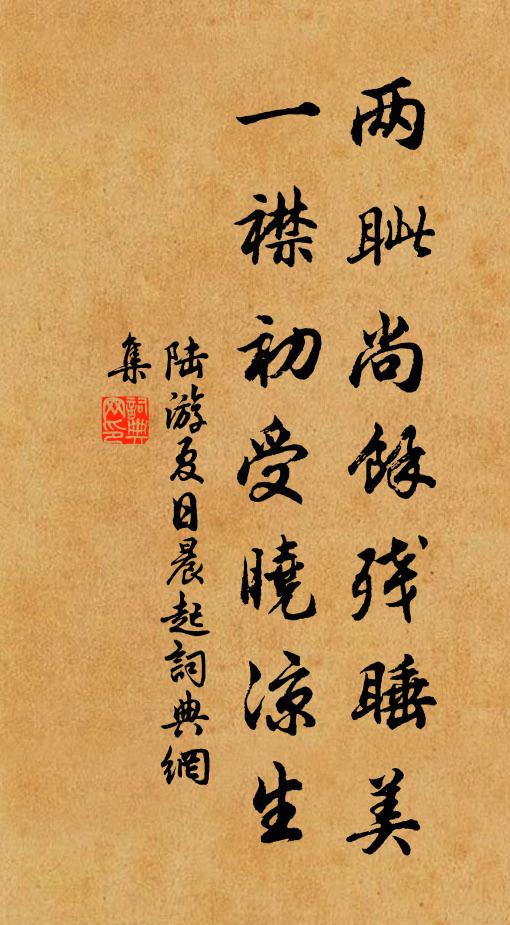 两眦尚餘残睡美
一襟初受曉凉生
陆游夏日晨起詞典網
集
詞典
网印